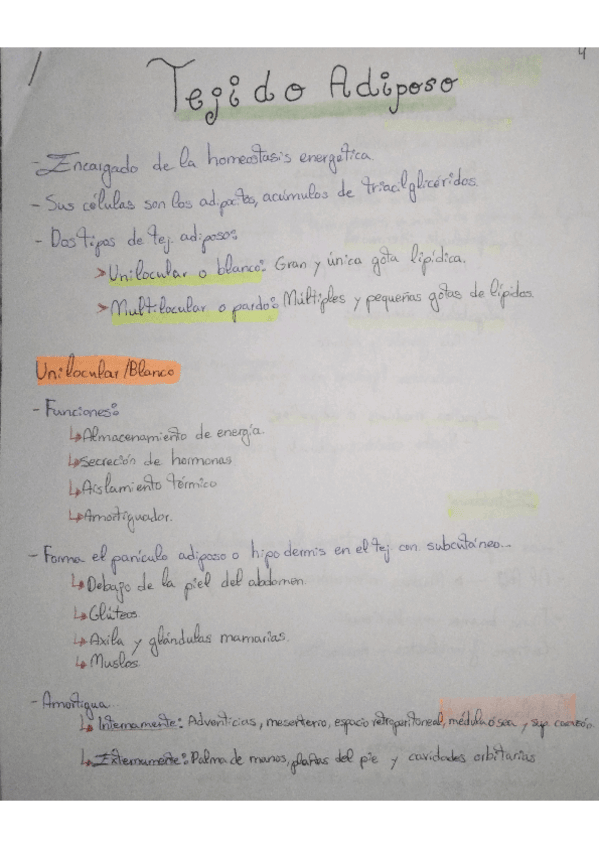 4
Tejido Adiposo
- Encargado de la homeostasis energética.
- Sus células son los adipocitos, acúmulos de triacilglicéridos.
- Dos tipos de tej. adiposo:
> Unilocular o blanco: Gran y única gota lipídica.
> Multilocular o pardo: Múltiples y pequeñas gotas de lípidos.
Unilocular/Blanco
- Funciones:
↳ Almacenamiento de energía.
↳ Secreción de hormonas
↳ Aislamiento térmico
↳ Amortiguador.
- Forma el panículo adiposo o hipodermis en el tej con. subcutáneo...
↳ Debajo de la piel del abdomen.
↳ Glúteos.
↳ Axila y glándulas mamarias.
↳ Muslos.
- Amortigua...
↳ Internamente: Adventicias, mesenterio, espacio retroperitoneal, médula ósea y sup corazón.
↳ Externamente: Palma de manos, plantas del pie y cavidades orbitarias